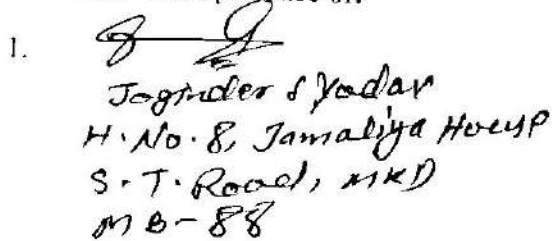 1.
Joginder S Yadav
H. No. 8, Jamaliya House
S. T. Road, MKD
MB - 88